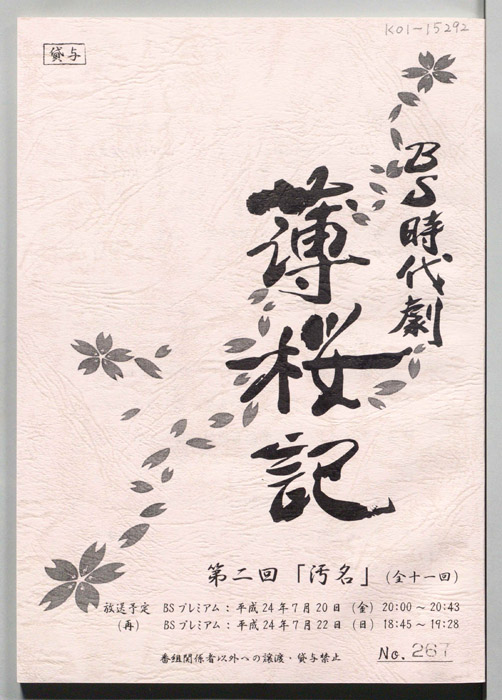 K01-15292
貸与
BS時代劇
薄桜記
第二回「汚名」(全十一回)
放送予定 BSプレミアム:平成24年7月20日(金)20:00~20:43
(再) BSプレミアム:平成24年7月22日(日)18:45~19:28
番組関係者以外への譲渡・貸与禁止
No. 267